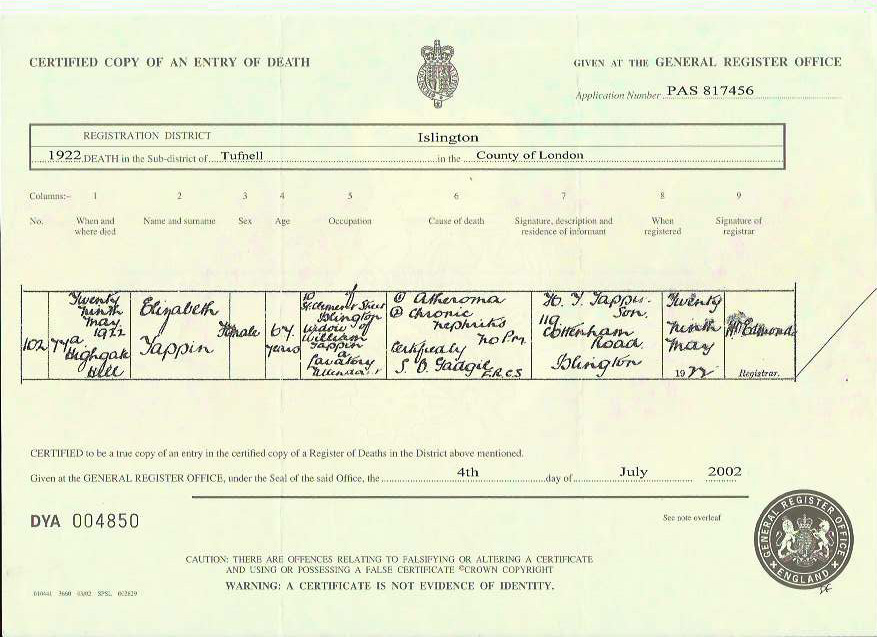 CERTIFIED COPY OF AN ENTRY OF DEATH
GIVEN AT THE GENERAL REGISTER OFFICE
Application Number PAS 817456
REGISTRATION DISTRICT Islington
1922 DEATH in the Sub-district of Tufnell in the County of London
Columns:- 1 2 3 4 5 6 7 8 9
No. When and where died Name and surname Sex Age Occupation Cause of death Signature, description and residence of informant When registered Signature of registrar
102
Twenty
ninth
May
1922
77a
Highgate
Hill
Elizabeth
Tappin
Female
67
years
10
St Clement Street
Islington
widow of
William
Tappin
a
Lavatory
① Atheroma
② Chronic
nephritis
no P.m.
Certified by
F.R.C.S
H. Tappin
Son.
119
Cottenham
Road
Islington
Twenty
ninth
May
1922
Edmonds
Registrar.
CERTIFIED to be a true copy of an entry in the certified copy of a Register of Deaths in the District above mentioned.
Given at the GENERAL REGISTER OFFICE, under the Seal of the said Office, the 4th day of July 2002
DYA 004850
See note overleaf
GENERAL REGISTER OFFICE
ENGLAND
CAUTION: THERE ARE OFFENCES RELATING TO FALSIFYING OR ALTERING A CERTIFICATE
AND USING OR POSSESSING A FALSE CERTIFICATE ©CROWN COPYRIGHT
WARNING: A CERTIFICATE IS NOT EVIDENCE OF IDENTITY.